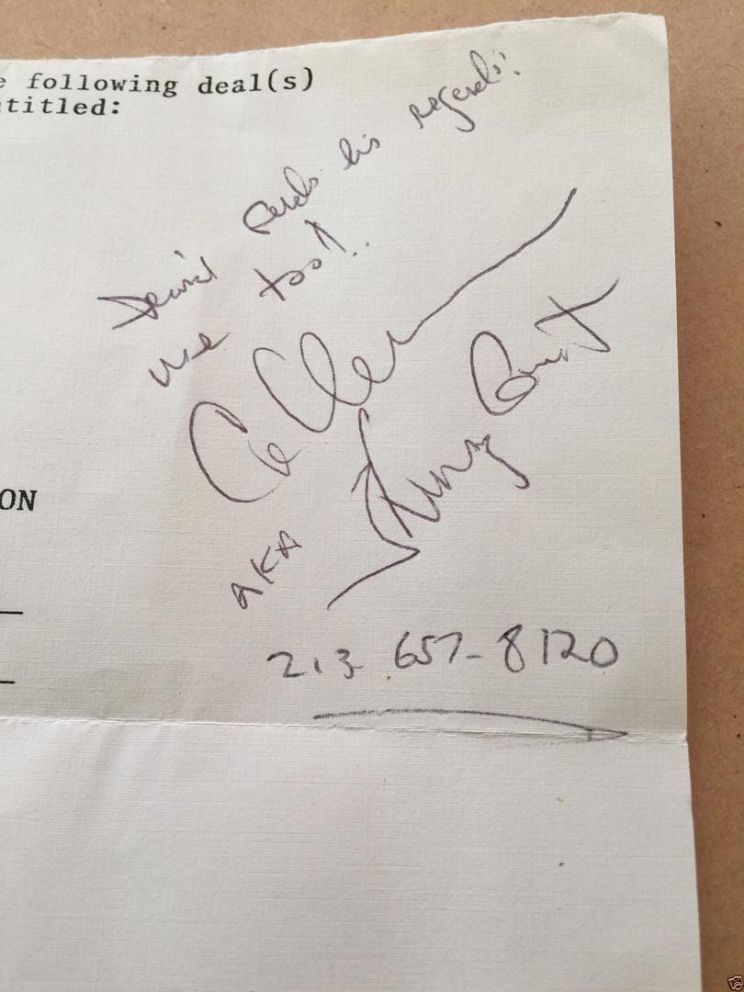 e following deal(s)
ntitled:
David sends his regards!
me too!..
ON
AKA
213 657-8120